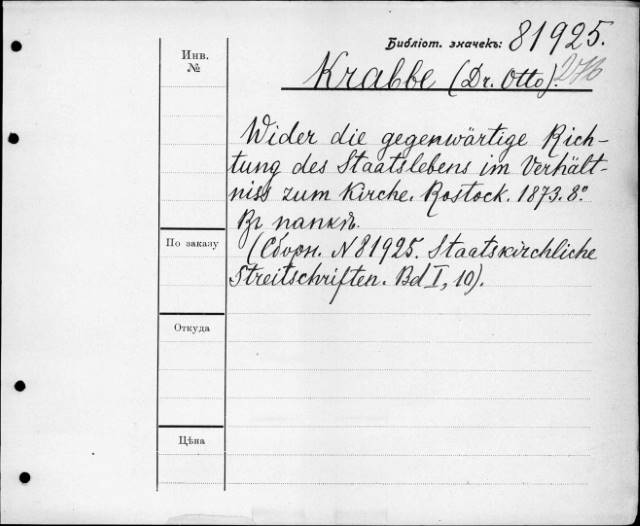 Библіот. значекъ: 81925.
Инв.
№
Krabbe (Dr. Otto).
Wider die gegenwärtige Rich-
tung des Staatslebens im Verhält-
niss zum Kirche. Rostock. 1873. 8.°
Въ папкѣ.
По заказу
(Сборн. N 81925. Staatskirchliche
Streitschriften. Bd I, 10).
Откуда
Цѣна